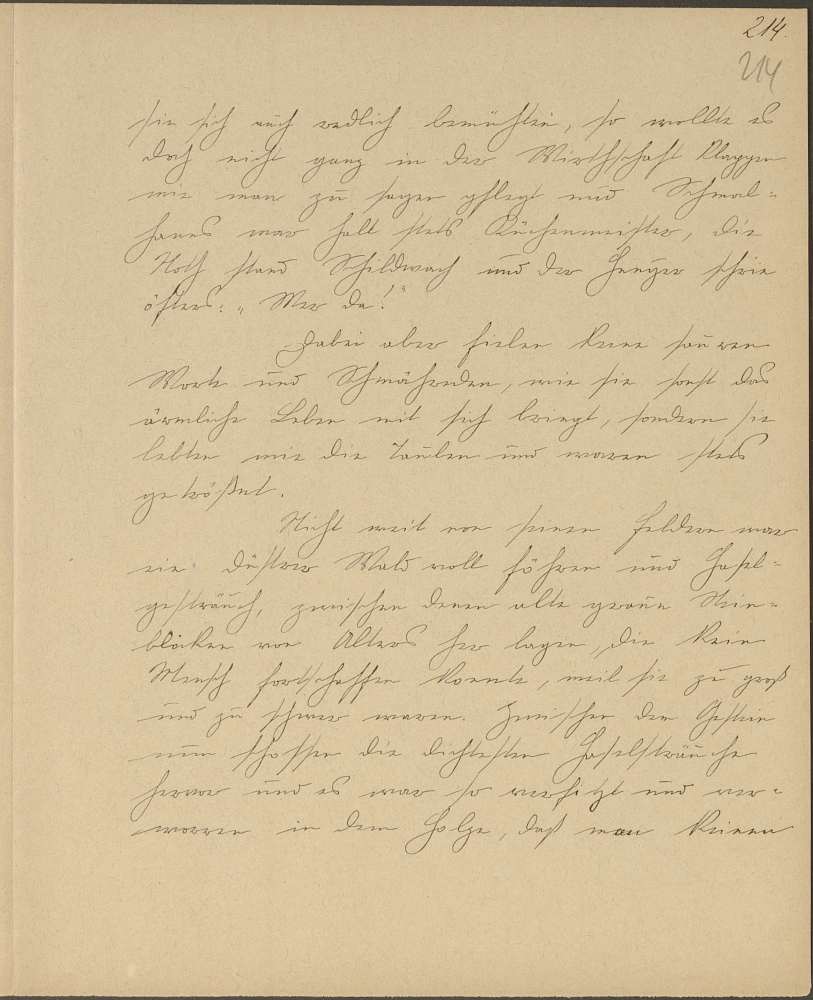 214.
214
sie sich auch redlich bemühten, so wollte es
doch nicht ganz in der Wirthschaft klappen
wie man zu sagen pflegt und Schmal-
hans war halt stets Küchenmeister, die
Noth stand Schildwach und der Hunger schrie
öfters: „Wer da!“
Dabei aber fielen keine sauren
Worte und Schmähreden, wie sie sonst das
ärmliche Leben mit sich bringt, sondern sie
lebten wie die Tauben und waren stets
getröstet.
Nicht weit von seinen Feldern war
ein düstrer Wald voll Föhren und Hasel-
gesträuch, zwischen denen alte graue Stein-
blöcke von Alters her lagen, die kein
Mensch fortschaffen konnte, weil sie zu groß
und zu schwer waren. Zwischen dem Gestein
nun schossen die dichtesten Haselsträuche
hervor und es war so verfitzt und ver-
worren in dem Holze, daß man keinen